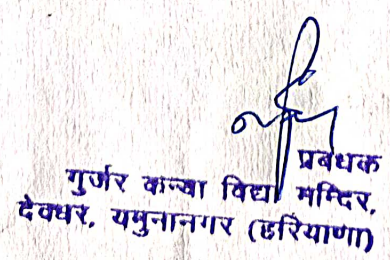 प्रबंधक
गुर्जर कन्या विद्या मन्दिर,
देवधर, यमुनानगर (हरियाणा)